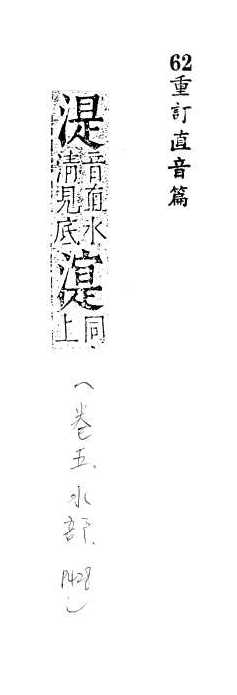 62重訂直音篇
湜音直水清見底
同上
(卷五、水部、P428)